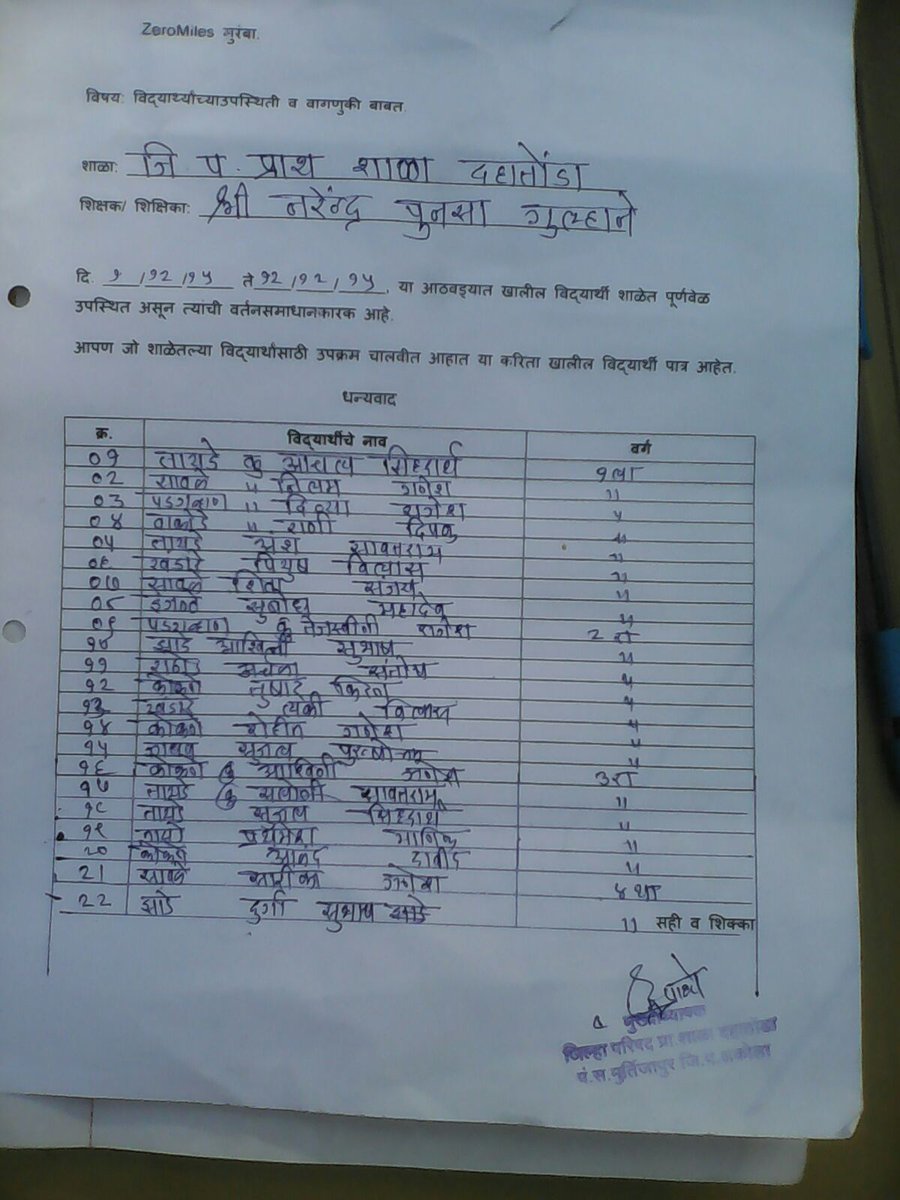 ZeroMiles मुरंबा.
विषय: विद्यार्थ्यांच्याउपस्थिती व वागणुकी बाबत.
शाळा: जि प. प्राथ शाळा दहातोंडा
शिक्षक/ शिक्षिका: श्री नरेंद्र पुनसा गुल्हाने
दि. १ /१२ /१५ ते १२ /१२ / १५, या आठवड्यात खालील विद्यार्थी शाळेत पूर्णवेळ
उपस्थित असून त्यांची वर्तनसमाधानकारक आहे.
आपण जो शाळेतल्या विद्यार्थांसाठी उपक्रम चालवीत आहात या करिता खालील विद्यार्थी पात्र आहेत.
धन्यवाद
क्र. विद्यार्थीचे नाव वर्ग
०१ तायडे कु सिद्धार्थ १ला
०२ सावळे " निलम गणेश "
०३ " दिव्या गणेश "
०४ वाकोडे " राणी दिपक "
०५ तायडे अंश सावतराम "
०६ खंडारे पियुष विलास "
०७ सावळे शिव संजय "
०८ इंगळे सुबोध महादेव "
०९ कु तेजस्वीनी गणेश २ रा
१० झाडे आश्विनी सुभाष "
११ संतोष "
१२ कोकणे तुषार किरण "
१३ खंडारे विलास "
१४ कोकणे रोहीत गणेश "
१५ "
१६ कोकणे कु आश्विनी गणेश ३रा
१७ तायडे कु सावतराम "
१८ तायडे सिद्धार्थ "
१९ तायडे प्रथमेश माणिक "
२० कोकणे आनंद "
21 सावळे सारीका गणेश ४ था
22 झाडे दुर्गा सुभाष झाडे " सही व शिक्का
मुख्याध्यापक
जिल्हा परिषद प्रा शाळा दहातोंडा
पं.स.मुर्तिजापुर जि.प.अकोला